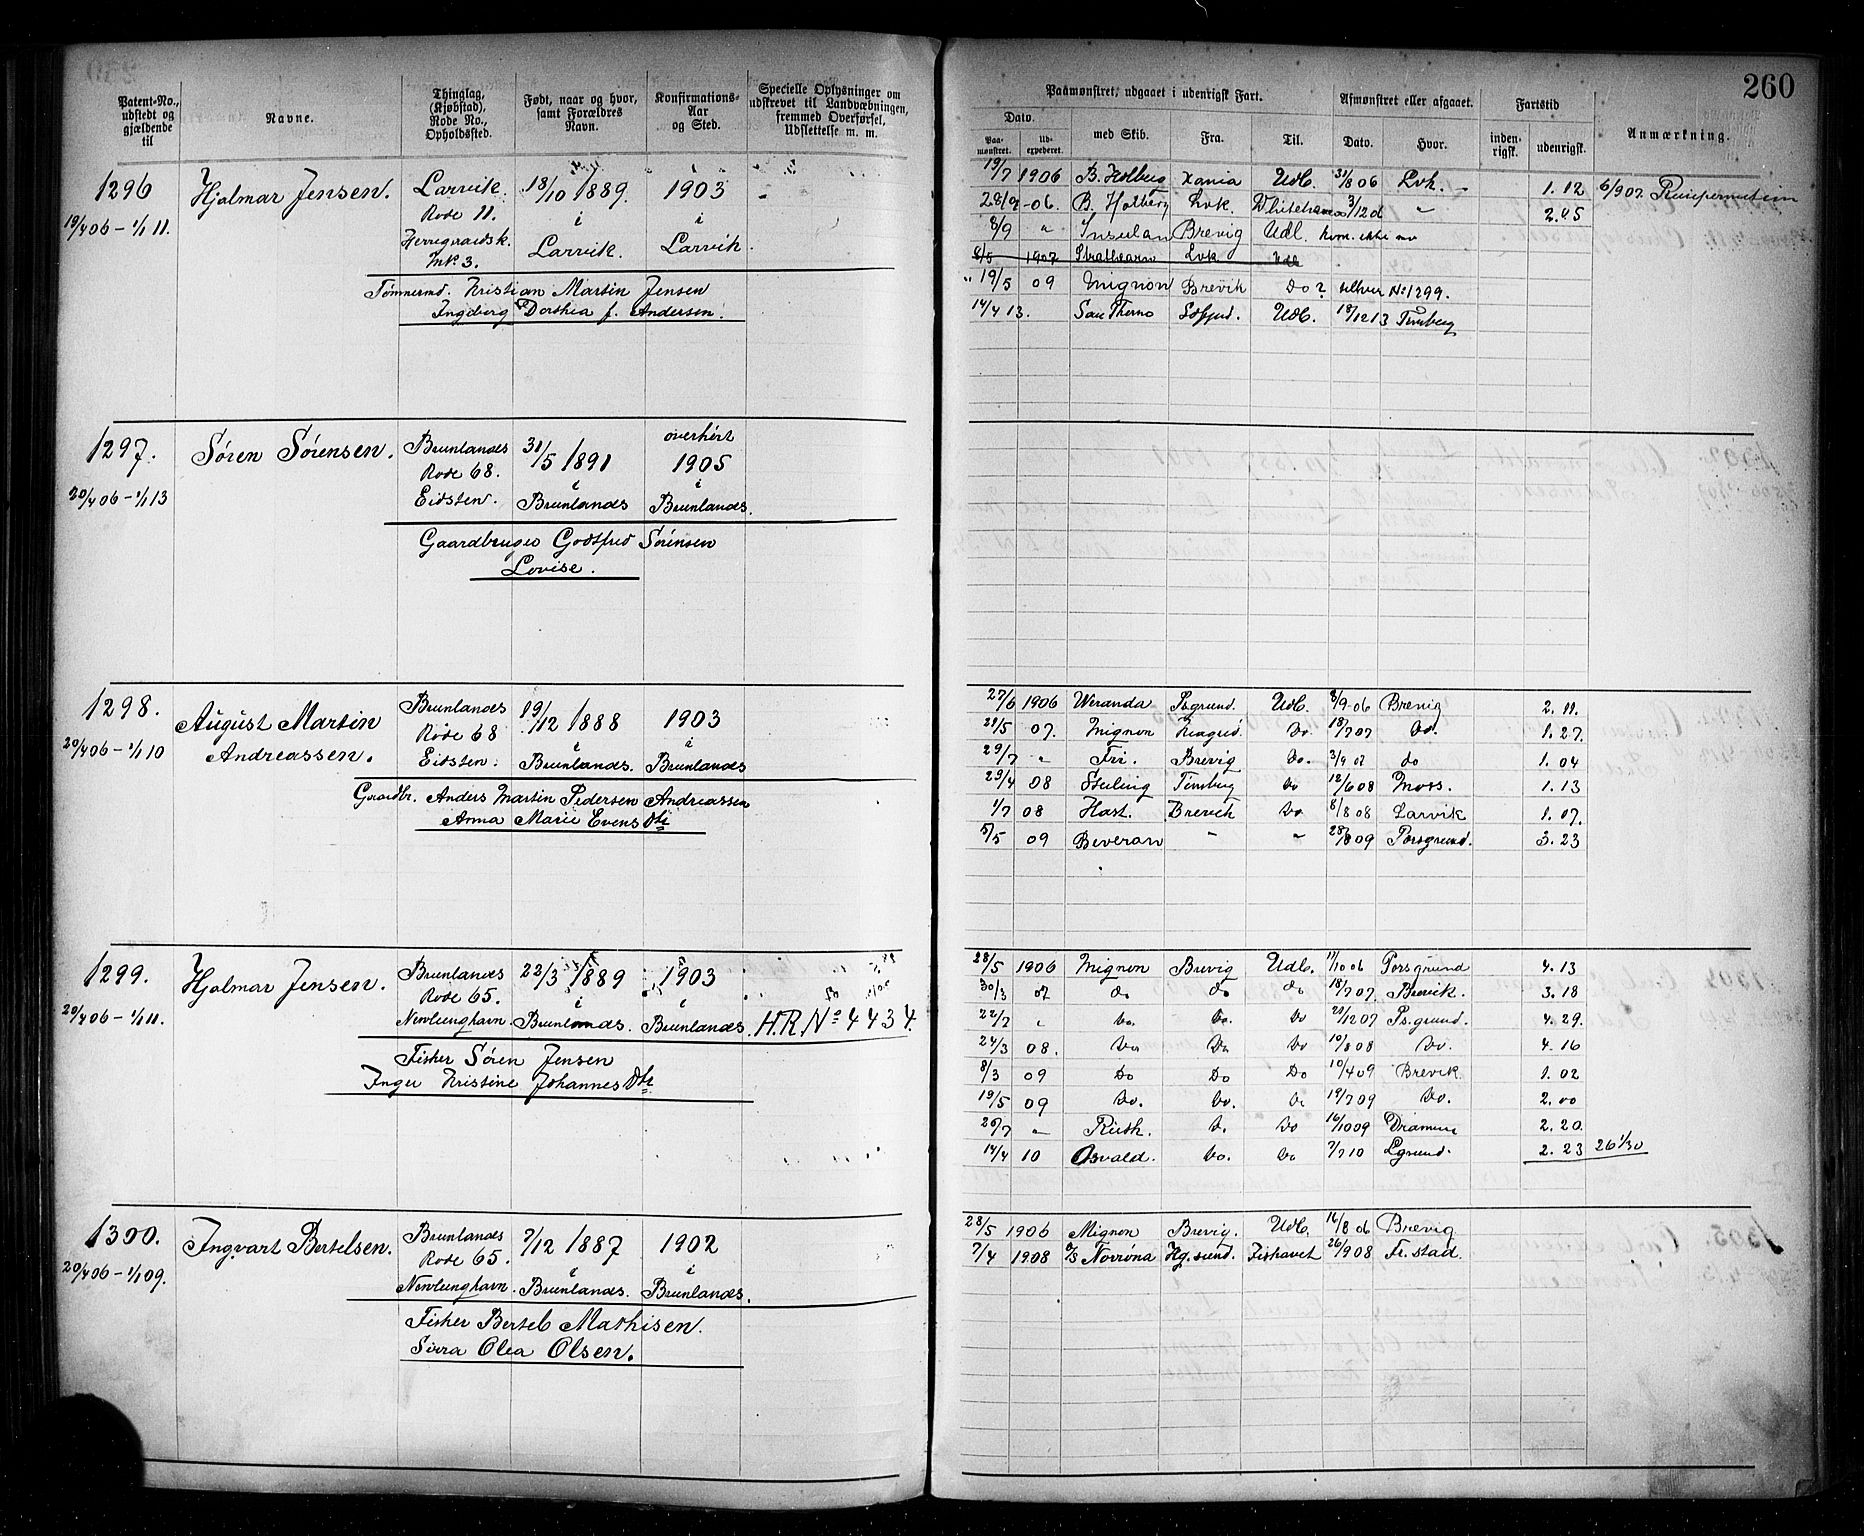 260
Patent-No., udstedt og gjældende til
Navne.
Thinglag, (Kjøbstad), Rode No., Opholdssted.
Født, naar og hvor, samt Forældres Navn.
Konfirmations-Aar og Sted.
Specielle Oplysninger om udskrevet til Landvæbningen, fremmed Overførsel, Udslettelse m. m.
Paamønstret, udgaaet i udenrigsk Fart.
Dato.
Paa-mønstret.
Ud-expederet.
med Skib.
Fra.
Til.
Afmønstret eller afgaaet.
Dato.
Hvor.
Fartstid
inden-rigsk.
udenrigsk.
Anmærkning.
1296 Hjalmar Jensen. Larvik. 18/10 1889. 1903
19/4 06 – 1/1 11. Rode 11. i i
Herregaardsk. Larvik. Larvik
Mk 3.
Tømmermd. Kristian Martin Jensen
Ingeberg Dorthea f. Andersen.
19/7 1906 B. Holberg Xania Udl. 31/8 06 Lvk. 1. 12 6/9 07
28/9 -06. B. Holberg Lvk. Whitehaven 3/12 d " 2. 05
8/9 " Insulan Brevig Udl.
8/5 1907 Strathearn Lvk Udl
" 19/5 09 Mignon Brevik Do? No 1299.
14/4 13. Udl. 18/12 13 Tønsberg
1297. Søren Sørensen. Brunlandes 31/5 1891 overhørt 1905
20/4 06 – 1/1 13 Rode 68. i i
Eidsten. Brunlandes Brunlandes.
Gaardbruger Godtfred Sørensen
Lovise.
1298. August Martin Andreassen. Brunlandes 19/12 1888 1903
20/4 06 – 1/1 10 Rode 68 i i
Eidsten. Brunlandes. Brunlandes
Gaardbr. Anders Martin Pedersen Andreassen
Anna Marie Evens Dtr
27/6 1906 Weranda Psgrund. Udl. 8/9 06 Brevig 2. 11.
21/5 07. Mignon Do. 18/7 07 Do. 1. 27.
29/7 " Fri. Brevig Do. 3/9 07 do 1. 04
29/4 08 Sterling Tønsberg Do 12/6 08 Moss. 1. 13
1/7 08 Hast. Brevik Do 8/8 08 Larvik 1. 07.
5/5 09 Beveran " " 28/8 09 Porsgrund. 3. 23
1299. Hjalmar Jensen. Brunlandes 22/3 1889 1903
20/4 06 – 1/1 11. Rode 65. i i
Nevlunghavn. Brunlandes Brunlandes. H.R. No 4434.
Fisker Søren Jensen
Inger Kristine Johannes Dtr
28/5 1906 Mignon Brevig Udl. 11/10 06 Porsgrund 4. 13
30/3 07 do do do 18/7 07. Brevik. 3. 18
22/7 " Do. Do. Do 21/12 07 Ps.grund. 4. 29.
24/3 08. Do Do Do 10/8 08 Do. 4. 16
8/3 09 Do Do Do 10/4 09 Brevik 1. 02
19/5 09 Do. Do. Do 19/7 09 Do. 2. 00
26/7 " Ruth. Do. Do 16/10 09 Drammen 2. 20.
14/4 10 Osvald. Do. Do 7/7 10 Lgrund. 2. 23 26 1/30
1300. Ingvart Bertelsen. Brunlandes 7/12 1887 1902
20/4 06 – 1/1 09. Rode 65. i i
Nevlunghavn. Brunlandes. Brunlandes.
Fisker Bertel Mathisen.
Sirra Olea Olsen.
28/5 1906 Mignon Brevig. Udl. 16/8 06 Brevig
7/4 1908 D/S Norrøna Hg.sund. Fishavet 26/9 08 Fr.stad.